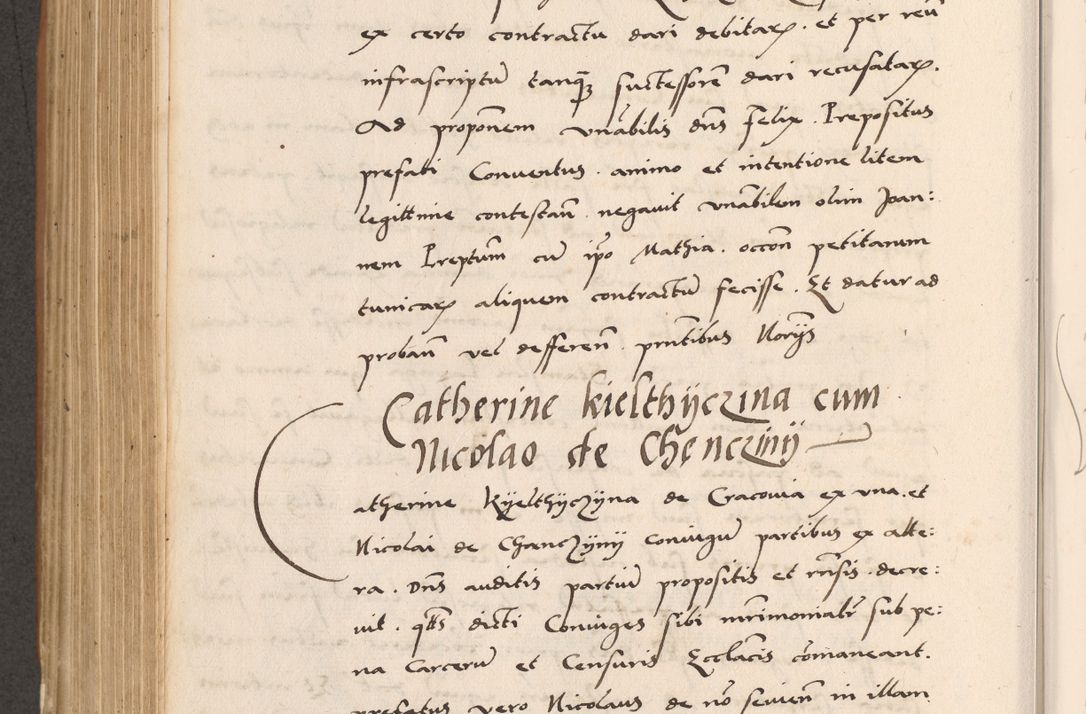 ex certo contractu dari debitaꝝ. et per reũ
infrascriptũ tanqꝫ successorẽ dari recusataꝝ.
Ad proponem vnãbilis dñs Felix. Prepositus
prefati Conuentus. animo et intentione litem
legittime contestañ. negauit vnãbilem olim Joan:
nem Preptum cũ ip̃o Mathia. occoñ petitarum
tunicaꝝ aliquem contractũ fecisse. Et datur ad
probañ vel deffereñ. pñtibus Norijs
Catherine kielthijczina cum
Nicolao de Chęnczinij
Catherine Kyelthijczijna de Cracouia ex vna. et
Nicolai de Chanczijnij Coniugũ partibus ex alte:
ra. Dñs auditis partiũ propositis et rñsis. decre:
uit. qtũs dicti Coniuges sibi mr̃imonialr̃ sub pe:
na Carcerũ et Censuris Eccl̃acis cõmaneant.
prefatus vero Nicolaus de nõ seuieñ in illam